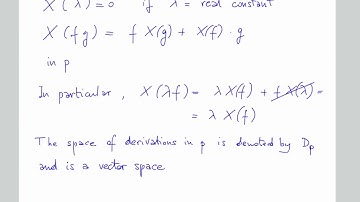 X(λ)=0 if λ = real constant
X(fg) = f X(g) + X(f)·g
in p
In particular, X(λf) = λ X(f) + f X(λ) =
= λ X(f)
The space of derivations in p is denoted by Dp
and is a vector space